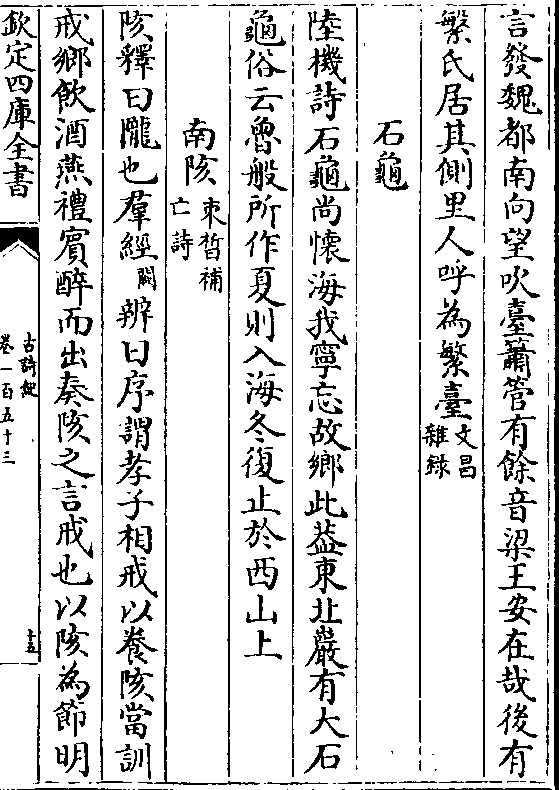 言發魏都南向望吹臺簫管有餘音梁王安在哉後有
繁氏居其側里人呼為繁臺文昌雜錄
石龜
陸機詩石龜尚懷海我寧忘故鄉此葢東北巖有大石
龜俗云魯般所作夏則入海冬復止於西山上
南陔束晳補亡詩
陔釋曰隴也羣經闕辨曰序謂孝子相戒以養陔當訓
戒鄉飲酒燕禮賓醉而出奏陔之言戒也以陔為節明
欽定四庫全書
古詩紀
卷一百五十三
十五